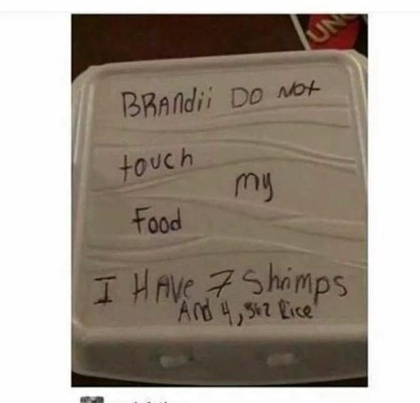 BRAndii DO NOt
touch
my
Food
I HAve 7 Shrimps
And 4,362 Rice
UNO